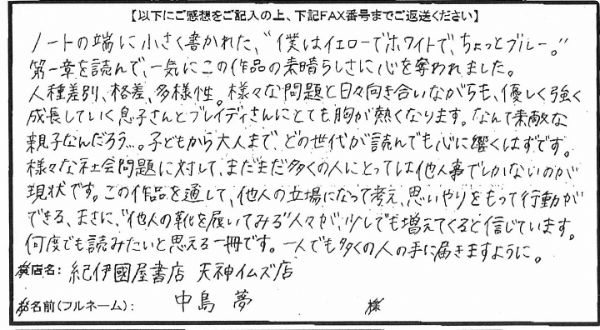 【以下にご感想をご記入の上、下記FAX番号までご返送ください】
ノートの端に小さく書かれた、“僕はイエローでホワイトで、ちょっとブルー。”
第一章を読んで、一気にこの作品の素晴らしさに心を奪われました。
人種差別、格差、多様性。様々な問題と日々向き合いながらも、優しく強く
成長していく息子さんとブレイディさんにとても胸が熱くなります。なんて素敵な
親子なんだろう…。子どもから大人まで、どの世代が読んでも心に響くはずです。
様々な社会問題に対して、まだまだ多くの人にとっては他人事でしかないのが
現状です。この作品を通して、他人の立場になって考え、思いやりをもって行動が
できる、まさに、“他人の靴を履いてみる”人々が、少しでも増えてくると信じています。
何度でも読みたいと思える一冊です。一人でも多くの人の手に届きますように。
店名： 紀伊國屋書店 天神イムズ店
名前（フルネーム）： 中島 夢 様